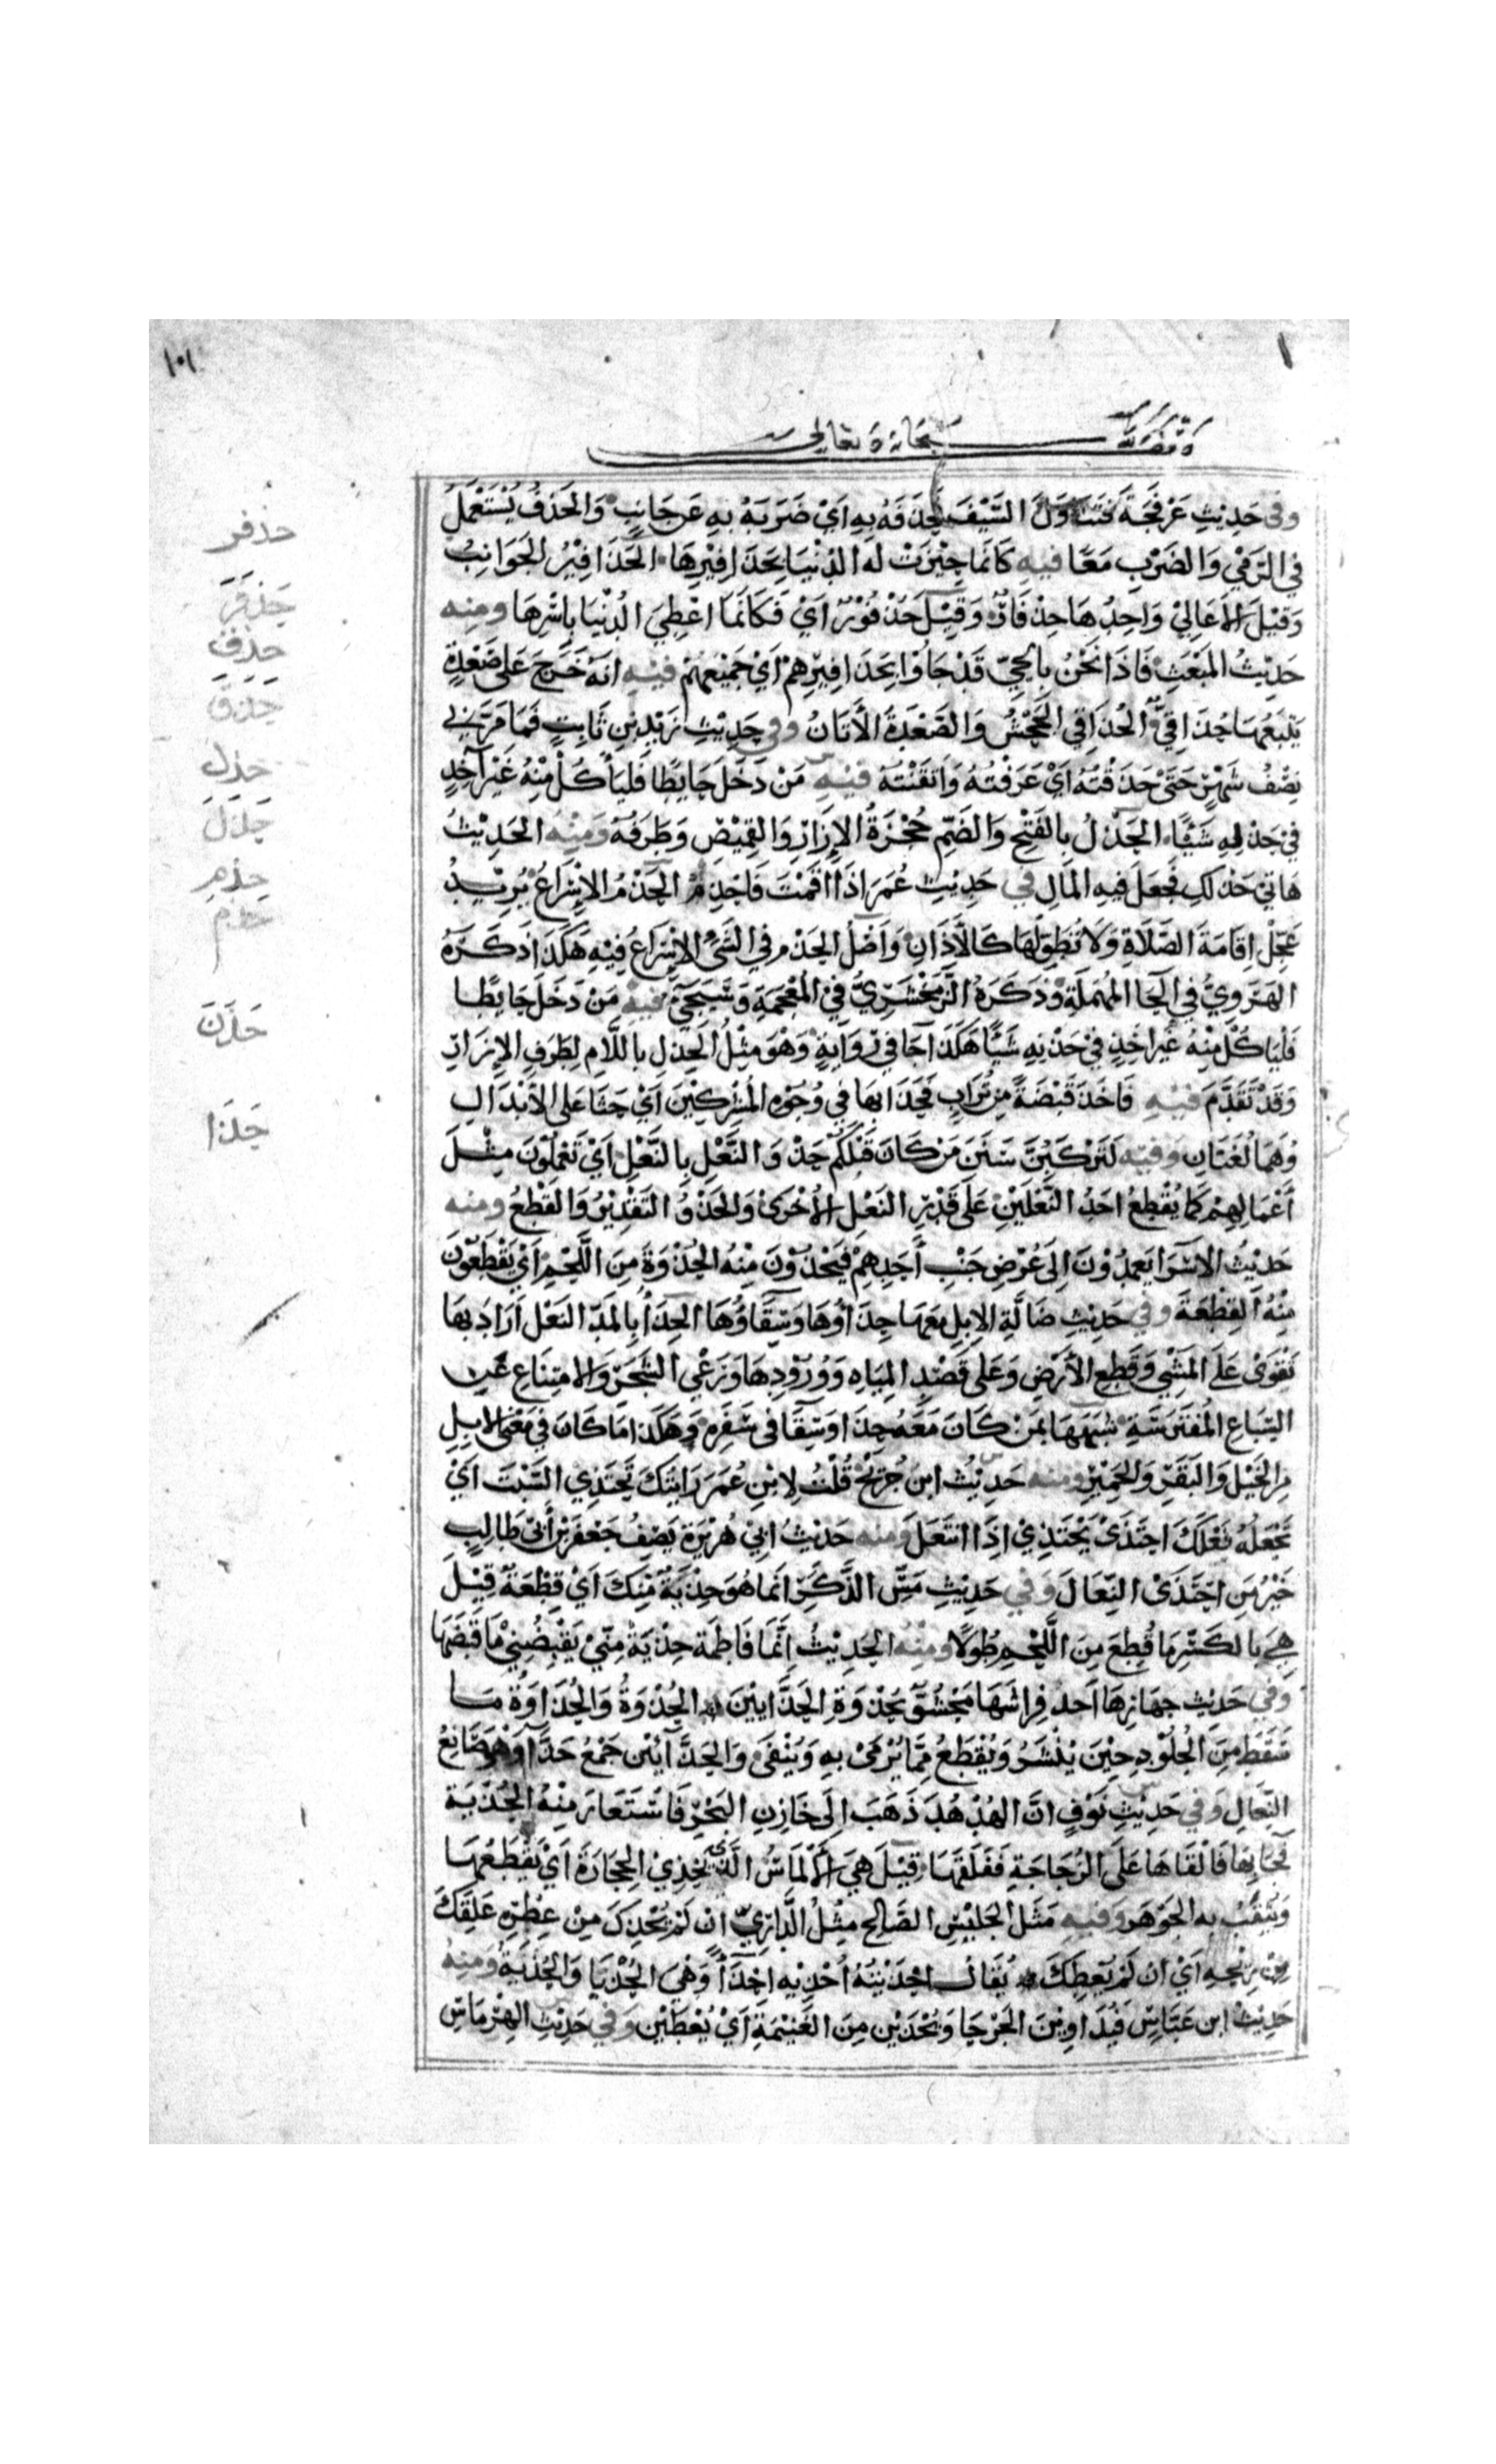 ١٠١
وقف لله سبحانه وتعالى
وفى حَدِيثِ عَرْفَجَةَ فَتَنَاوَلَ السَّيْفَ فَحَذَفَهُ بِهِ اَيْ ضَرَبَهُ بِهِ عَن جَانِبٍ وَالحَذفُ يُسْتَعْمَلُ
فِي الرَّمْيِ وَالضَرْبِ مَعًا فيهِ كَانَمَا حِيْزَتْ لَه الدُنْيَا بِحَذَافِيْرِهَا الحَذَافِيْرُ الجَوَانِبُ
وَقِيْلَ الأَعَالِيْ وَاحِدُهَا حِذْفَارٌ وَقِيْلَ حُذْفُوْرٌ اَيْ فَكَانَمَا اعْطِيَ الدُنْيَا بِاسْرِهَا ومنه
حَدِيْثُ المَبْعَثِ فَاذَا نَحْنُ بِالحَيِّ قَدْ جَاوا بِحَذَافِيرِهِمْ اَيْ جَمِيْعِهِمْ فيْهِ انَّهُ خَرَجَ عَلى صَعْدَةٍ
يَتْبَعُهَا حُذَاقِيٌّ الحُذَاقِي الجَحْشُ وَالصَعْدَةُ الأَتَانُ وفى حَدِيْثِ زَيْدِ بْنِ ثَابِتٍ فَمَا مَرَّ بِي
نِصْفُ شَهْرٍ حَتَّى حَذَقْتُهُ اَيْ عَرَفْتُهُ وَاتقَنْتُه فيْهِ مَنْ دَخَلَ حَايِطًا فَليَأكُلْ مِنْهُ غَيْرَ آخِذٍ
فِيْ حَذْلِهِ شَيْئًا الحَذْلُ بِالفَتْحِ وَالضَّمِّ حُجْزَةُ الإِزَارِ وَالقَمِيْصِ وَطَرَفُهُ وَمِنْهُ الحَدِيْثُ
هَاتِيْ حَذْلَكِ فَجَعَلَ فيهِ المَالَ في حَدِيْثِ عُمَرَ اذَا اقَمْتَ فَاحْذِمْ الحَذْمُ الإِسْرَاعُ يُرِيْدُ
عَجِّلْ اِقَامَةَ الصَّلَاةِ وَلَا تُطَوِّلْهَا كَالأَذَانِ وَاَصْلُ الحَذْمِ فِي الشَيْءِ الإِسْرَاعُ فِيْهِ هَكَذَا ذَكَرَهُ
الهَرَوِيُّ فِي الحَا المُهمَلَةِ وَذكَرَهُ الزَّمَخْشَرِيُّ فِيْ المُعْجَمَةِ وَسَيَجِيءُ فيْهِ مَنْ دَخَلَ حَايِطًا
فَليَاكُلْ مِنْهُ غَيْرَ اخِذٍ فِيْ حَذْنِهِ شَيْئًا هَكَذَا جَا فِيْ رِوَايَةٍ وَهْوَ مِثْلُ الحَذلِ بِاللَّامِ لِطَرَفِ الإِزَارِ
وَقَدْ تَقَدَّمَ فيْهِ فَاخَذَ قَبْضَةً مِنْ تُرَابٍ فَحَذَا بِهَا فِي وُجُوْهِ المُشْرِكِيْنَ اَيْ حَثَا عَلَى الأِبْدَالِ
وَهُمَا لُغَتَانِ وَفيْهِ لَتَرْكَبُنَّ سَنَنَ مَنْ كَانَ قَبْلَكُمْ حَذْوَ النَّعْلِ بِالنَّعْلِ اَيْ تَعْمَلُوْنَ مِثْلَ
اَعْمَالِهِمْ كَمَا يُقْطَعُ احَدُ النَّعْلَيْنِ عَلَى قَدْرِ النَعْلِ الأُخْرَى وَالحَذْوُ التَقْدِيْرُ وَالقَطْعُ ومنه
حَدِيْثُ الاسْرَا يَعمِدُوْنَ اِلَى عُرْضِ جَنْبِ اَحَدِهِمْ فَيَحْذُوْنَ مِنْهُ الحُذْوَةَ مِنَ اللَّحْمِ اَيْ يَقْطَعُوْنَ
مِنْهُ القِطْعَةَ وفى حَدِيْثِ ضَالَّةِ الإِبِلِ مَعَهَا حِذَاؤُهَا وَسِقَاؤُهَا الحِذَاُ بِالمَدِّ النَعْل اَرَادَ بِهَا
تَقْوَى عَلَى المَشْيِ وَقَطعِ الأَرْضِ وَعَلَى قَصْدِ المِيَاهِ وَوُرُوْدِهَا وَرَعْيِ الشَجَرِ وَالامتِنَاعِ عَنِ
السِّبَاعِ المُفْتَرِسَةِ شَبَهَهَا بِمَنْ كَانَ مَعَهُ حِذَا وَسِقَا فى سَفَرِهِ وَهَكَذَا مَا كَانَ فِي مَعْنَى الابِلِ
مِنَ الخَيْلِ وَالبَقَرِ وَالحَمِيْرِ ومنه حَدِيْثُ ابنِ جُرَيْجٍ قُلْتُ لِابْنِ عُمَرَ رَايتُكَ تَحْتَذِي السِّبْتَ اَيْ
تَجْعَلُهُ نَعْلَكَ احتَذَىْ يَحْتَذِيْ اذَا انتَعَلَ وَمنه حَدِيْثُ ابِيْ هُرَيْرَةَ يَصِفُ جَعْفَرَ بْنَ اَبِيْ طَالِبٍ
خَيْرُ مَنِ احْتَذَىْ النِّعَالَ وَفي حَدِيْثِ مَسِّ الذَّكَرِ انَمَا هُوَ حِذْيَةٌ مِنْكَ اَيْ قِطْعَةٌ قِيْلَ
هِيَ بِالكَسْرِ مَا قُطِعَ مِنَ اللَّحْمِ طُوْلًا ومِنْهُ الحَدِيْثُ اِنَّمَا فَاطِمَةُ حِذْيَةٌ مِنِّيْ يَقْبِضُنِيْ مَا قَبَضَهَا
وَفِيْ حَدِيْثِ جَهَازِهَا اَحَدُ فِرَاشَيهَا مَحْشُوٌّ بِحُذْوَةِ الحَذَّايِيْنَ الحُذْوَةُ وَالحُذَاوَةُ مَا
سَقَطَ مِنَ الجُلُوْدِ حِيْنَ يُبْشَرُ وَيُقْطَعُ مِمَّا يُرْمَىْ بِهِ وَيُنْفَى وَالحَذَّائِيْن جَمْعُ حَذَّاءٍ وَهُوَ صَانِعُ
النِّعَالِ وَفي حَدِيْثِ نَوْفٍ انَّ الهُدْهُدَ ذَهَبَ اِلَى خَازِنِ البَحْرِ فَاسْتَعَارَ مِنْهُ الحِذْيَةَ
فَجَا بِهَا فَالْقَاهَا عَلَى الزُجَاجَةِ فَفَلَقَهَا قِيْلَ هِيَ الأَلمَاسُ الَّذِي يُحْذِيْ الحِجَارَةَ اَيْ يَقْطَعُهَا
وَيُثْقَبُ بِه الجَوْهَر وَفيْهِ مَثَلُ الجَلِيْسِ الصَالِحِ مِثْلُ الدَّارِيِّ انْ لَمْ يُحْذِكَ مِنْ عِطْرِهِ عَلِقَكَ
مِنْ رِيْحِهِ اَيْ انْ لَمْ يُعْطِكَ يُقَالُ احْذَيْتُهُ اُحْذِيْه اِحْذَاءً وَهْيَ الحُذْيَا وَالحُذْيَةُ وَمِنْهُ
حَدِيْثُ ابن عَبَّاسٍ فَيُدَاوِيْنَ الجَرْحَا وَيُحْذَيْن مِنَ الغَنِيْمَةِ اَيْ يُعْطَيْنَ وَفي حَدِيْثِ الهِرْمَاسِ
حذفر
حذف
حذل
حذم
حَذَنَ
حَذَا